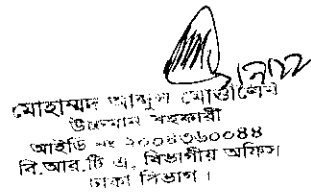 মোহাম্মদ আব্দুল
উচ্চমান সহকারী
আইডি নং ২০০৪৩৬০০৪৪
বি.আর.টি এ, বিভাগীয় অফিস।
ঢাকা বিভাগ।